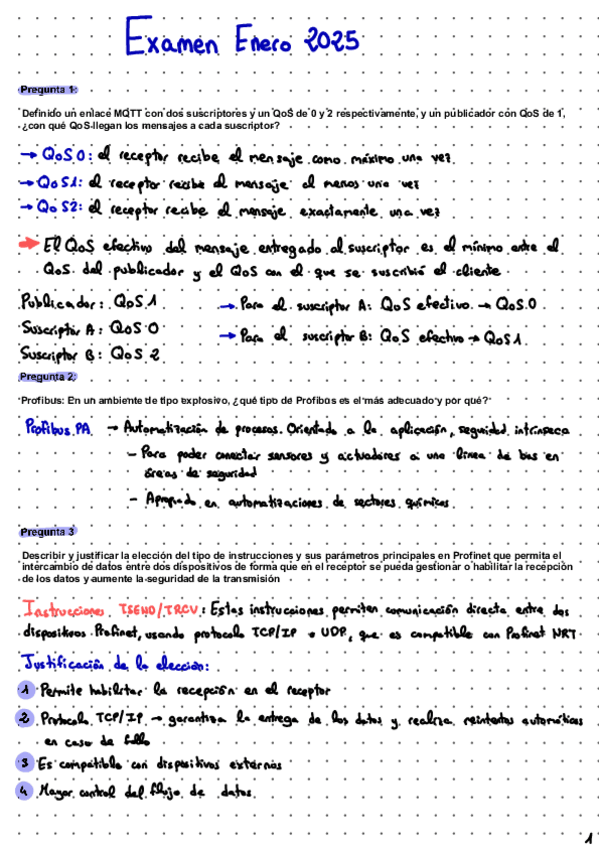 Examen Enero 2025
Pregunta 1:
Definido un enlace MQTT con dos suscriptores y un QoS de 0 y 2 respectivamente, y un publicador con QoS de 1,
¿con qué QoS llegan los mensajes a cada suscriptor?
→ QoS 0: el receptor recibe el mensaje como máximo una vez
→ QoS1: el receptor recibe el mensaje al menos una vez
→ QoS2: el receptor recibe el mensaje exactamente una vez
→ El QoS efectivo del mensaje entregado al suscriptor es el mínimo entre el
QoS del publicador y el QoS con el que se suscribió el cliente
Publicador: QoS 1
→ Para el suscriptor A: QoS efectivo → QoS 0
Suscriptor A: QoS 0
→ Para el suscriptor B: QoS efectivo → QoS 1
Suscriptor B: QoS 2
Pregunta 2:
Profibus: En un ambiente de tipo explosivo, ¿qué tipo de Profibus es el más adecuado y por qué?
Profibus PA → Automatización de procesos. Orientado a la aplicación, seguridad intrínseca
- Para poder conectar sensores y actuadores a una línea de bus en
áreas de seguridad
- Apropiado en automatizaciones de sectores químicos
Pregunta 3
Describir y justificar la elección del tipo de instrucciones y sus parámetros principales en Profinet que permita el
intercambio de datos entre dos dispositivos de forma que en el receptor se pueda gestionar o habilitar la recepción
de los datos y aumente la seguridad de la transmisión
Instrucciones TSEND/TRCV: Estas instrucciones permiten comunicación directa entre dos
dispositivos Profinet, usando protocolo TCP/IP o UDP, que es compatible con Profinet NRT
Justificación de la elección:
1 Permite habilitar la recepción en el receptor
2 Protocolo TCP/IP → garantiza la entrega de los datos y realiza reintentos automáticos
en caso de fallo
3 Es compatible con dispositivos externos
4 Mayor control del flujo de datos
1